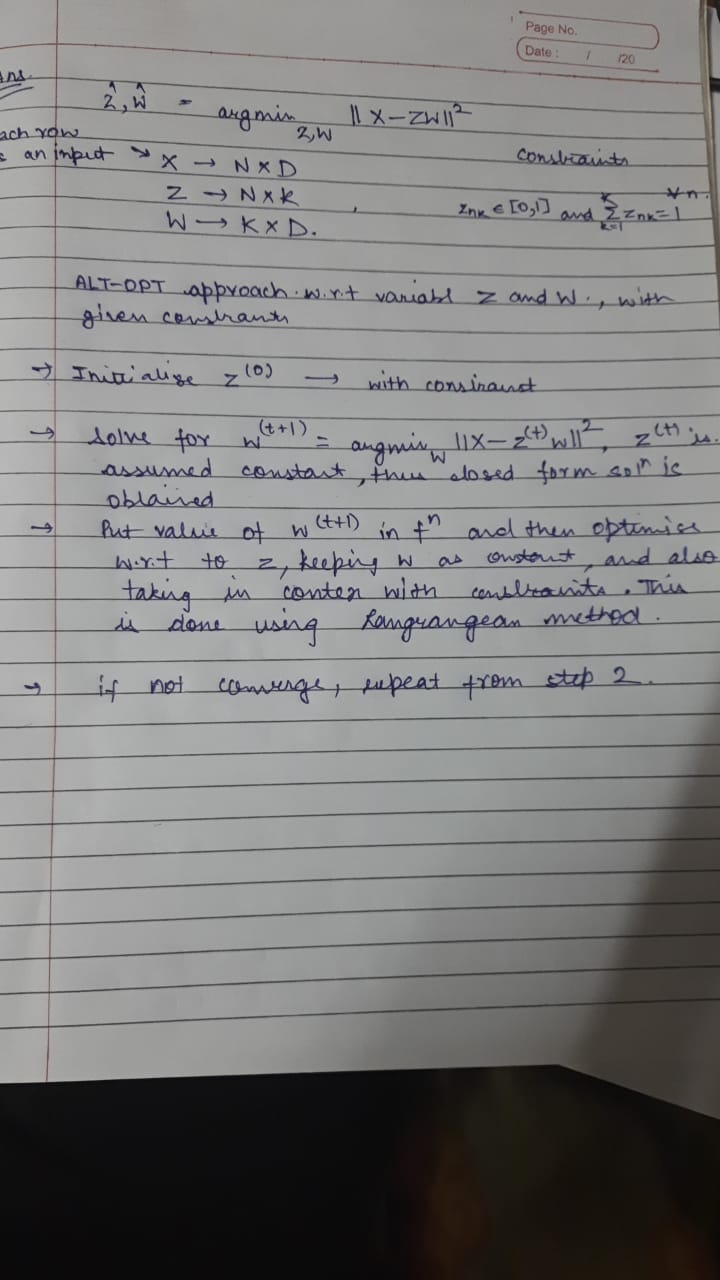 Page No.
Date : / /20
Ans.
Ẑ, Ŵ = argmin Z,W ||X-ZW||²
ach row
s an input → X → N x D constraints
Z → N x K , znk ∈ [0,1] and Σ k=1 K znk = 1 ∀n.
W → K x D.
ALT-OPT approach w.r.t variabl Z and W., with
given constrants
→ Initialise Z(0) → with consiranst
→ Solve for W(t+1) = argmin W ||X-Z(t)W||², Z(t) is
assumed constant, then closed form solⁿ is
oblained
→ Put value of W(t+1) in fⁿ and then optimise
w.r.t to Z, keeping W as constant, and also
taking in contex with constraints. This
is done using Langrangean method.
→ if not converge, repeat from step 2.